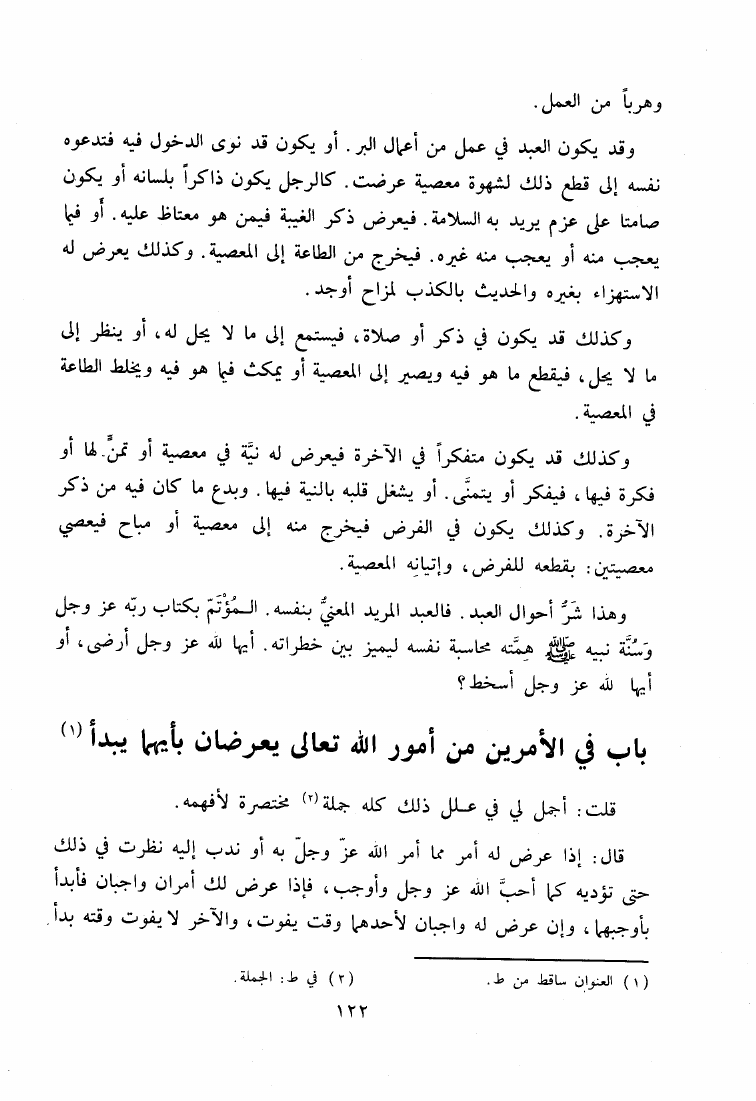 وهرباً من العمل.
وقد يكون العبد في عمل من أعمال البر. أو يكون قد نوى الدخول فيه فتدعوه
نفسه إلى قطع ذلك لشهوة معصية عرضت. كالرجل يكون ذاكراً بلسانه أو يكون
صامتا على عزم يريد به السلامة. فيعرض ذكر الغيبة فيمن هو مغتاظ عليه. أو فيما
يعجب منه أو يعجب منه غيره. فيخرج من الطاعة إلى المعصية. وكذلك يعرض له
الاستهزاء بغيره والحديث بالكذب لمزاح أوجد.
وكذلك قد يكون في ذكر أو صلاة، فيستمع إلى ما لا يحل له، أو ينظر إلى
ما لا يحل، فيقطع ما هو فيه ويصير إلى المعصية أو يمكث فيما هو فيه ويخلط الطاعة
في المعصية.
وكذلك قد يكون متفكراً في الآخرة فيعرض له نيَّة في معصية أو تمنٍّ. لها أو
فكرة فيها، فيفكر أو يتمنَّى. أو يشغل قلبه بالنية فيها. ويدع ما كان فيه من ذكر
الآخرة. وكذلك يكون في الفرض فيخرج منه إلى معصية أو مباح فيعصي
معصيتين: بقطعه للفرض، وإتيانه المعصية.
وهذا شَرُّ أحوال العبد. فالعبد المريد المعنيُّ بنفسه. المُؤْتَمّ بكتاب ربّه عز وجل
وَسُنَّة نبيه ﷺ هِمَّته محاسبة نفسه ليميز بين خطراته. أيها لله عز وجل أرضى، أو
أيها لله عز وجل أسخط؟
باب في الأمرين من أمور الله تعالى يعرضان بأيهما يبدأ (١)
قلت: أجمل لي في علل ذلك كله جملة (٢) مختصرة لأفهمه.
قال: إذا عرض له أمر مما أمر الله عزّ وجلّ به أو ندب إليه نظرت في ذلك
حتى تؤديه كما أحبَّ الله عز وجل وأوجب، فإذا عرض لك أمران واجبان فأبدأ
بأوجبهما، وإن عرض له واجبان لأحدهما وقت يفوت، والآخر لا يفوت وقته بدأ.
(١) العنوان ساقط من ط. (٢) في ط: الجملة.
١٢٢